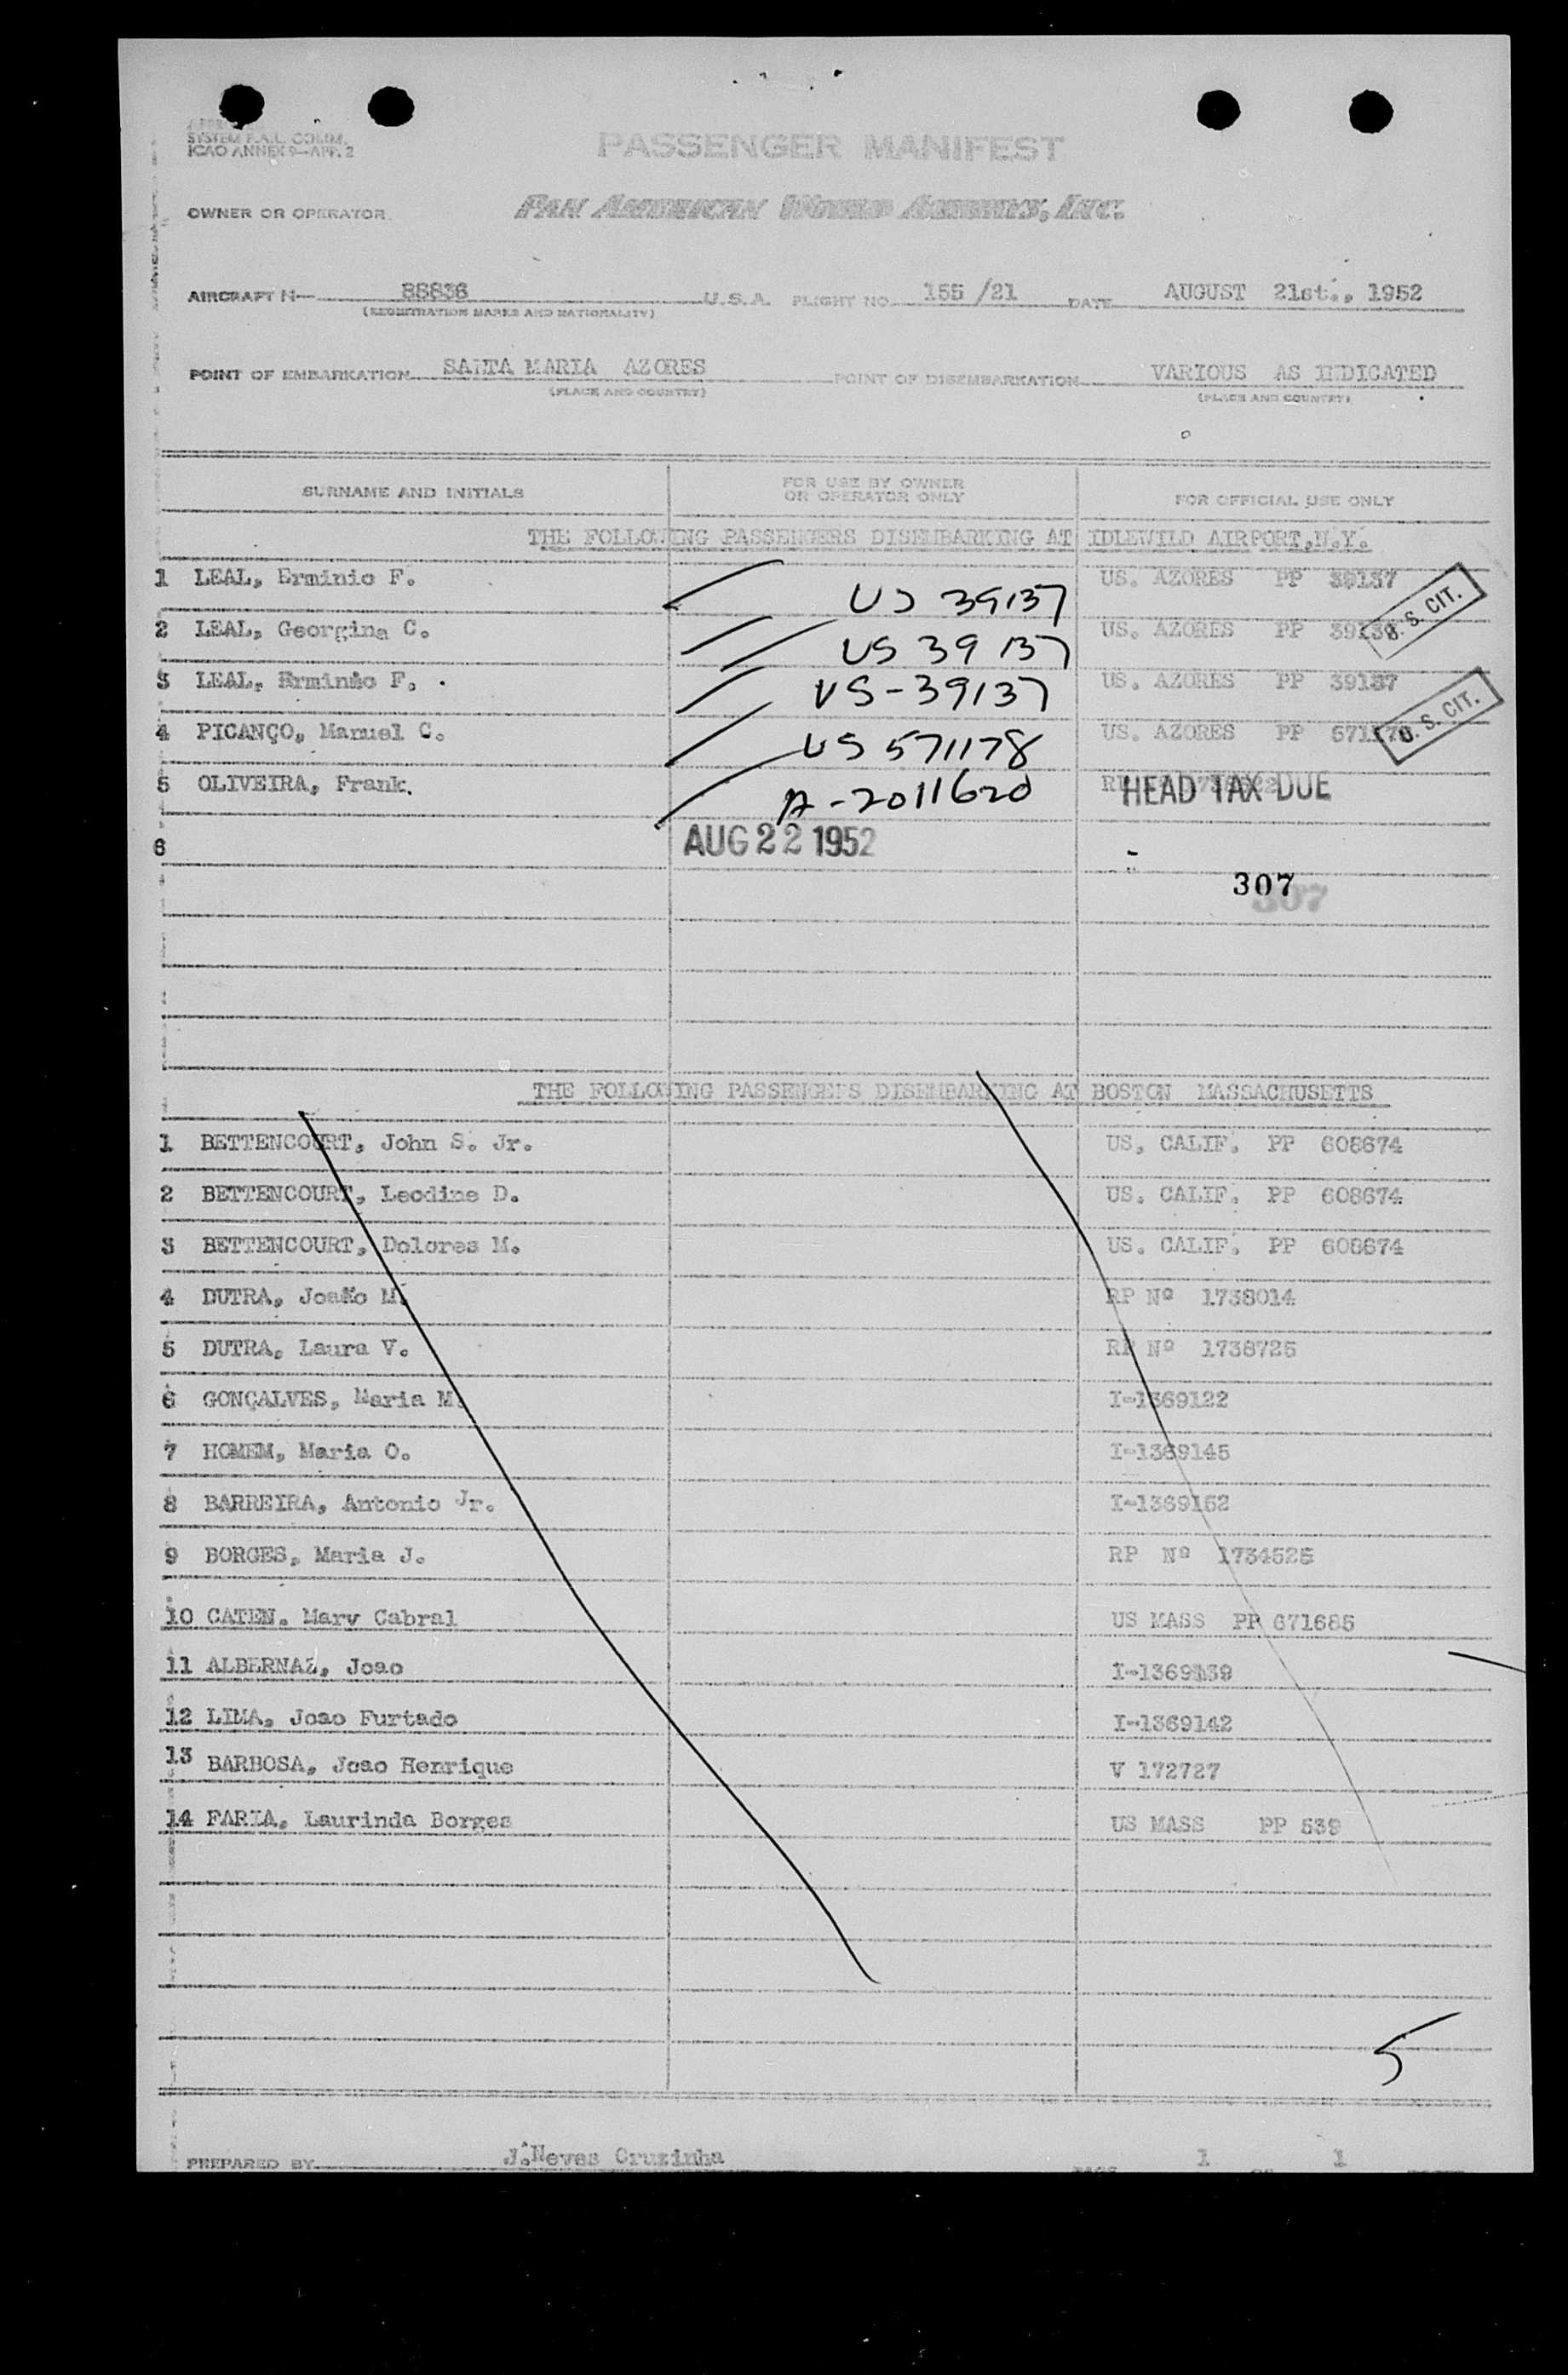 SYSTEM F.A.L. COMM.
ICAO ANNEX 9—APP. 2
PASSENGER MANIFEST
OWNER OR OPERATOR
PAN AMERICAN WORLD AIRWAYS, INC.
AIRCRAFT N— 88836 U.S.A. FLIGHT NO. 155 /21 DATE AUGUST 21st., 1952
(REGISTRATION MARKS AND NATIONALITY)
POINT OF EMBARKATION SANTA MARIA AZORES POINT OF DISEMBARKATION VARIOUS AS INDICATED
(PLACE AND COUNTRY) (PLACE AND COUNTRY)
SURNAME AND INITIALS FOR USE BY OWNER OR OPERATOR ONLY FOR OFFICIAL USE ONLY
THE FOLLOWING PASSENGERS DISEMBARKING AT IDLEWILD AIRPORT,N.Y.
1 LEAL, Erminio F. US 39137 US. AZORES PP 39137
2 LEAL, Georgina C. US 39137 US. AZORES PP U. S. CIT.
3 LEAL, Erminio F. US-39137 US. AZORES PP 39137
4 PICANÇO, Manuel C. US 571178 US. AZORES PP U. S. CIT.
5 OLIVEIRA, Frank. A-2011620 HEAD TAX DUE
6 AUG 22 1952
307
307
THE FOLLOWING PASSENGERS DISEMBARKING AT BOSTON MASSACHUSETTS
1 BETTENCOURT, John S. Jr. US, CALIF. PP 608674
2 BETTENCOURT, Leodine D. US. CALIF. PP 608674
3 BETTENCOURT, Dolores M. US. CALIF. PP 608674
4 DUTRA, Joao M. RP Nº 1738014
5 DUTRA, Laura V. RP Nº 1738725
6 GONÇALVES, Maria M. I-1369122
7 HOMEM, Maria O. I-1369145
8 BARREIRA, Antonio Jr. I-1369152
9 BORGES, Maria J. RP Nº 1734525
10 CATEN. Mary Cabral US MASS PP 671685
11 ALBERNAZ, Joao I-1369139
12 LIMA, Joao Furtado I-1369142
13 BARBOSA, Joao Henrique V 172727
14 FARIA, Laurinda Borges US MASS PP 539
5
PREPARED BY J. Neves Cruzinha 1 1